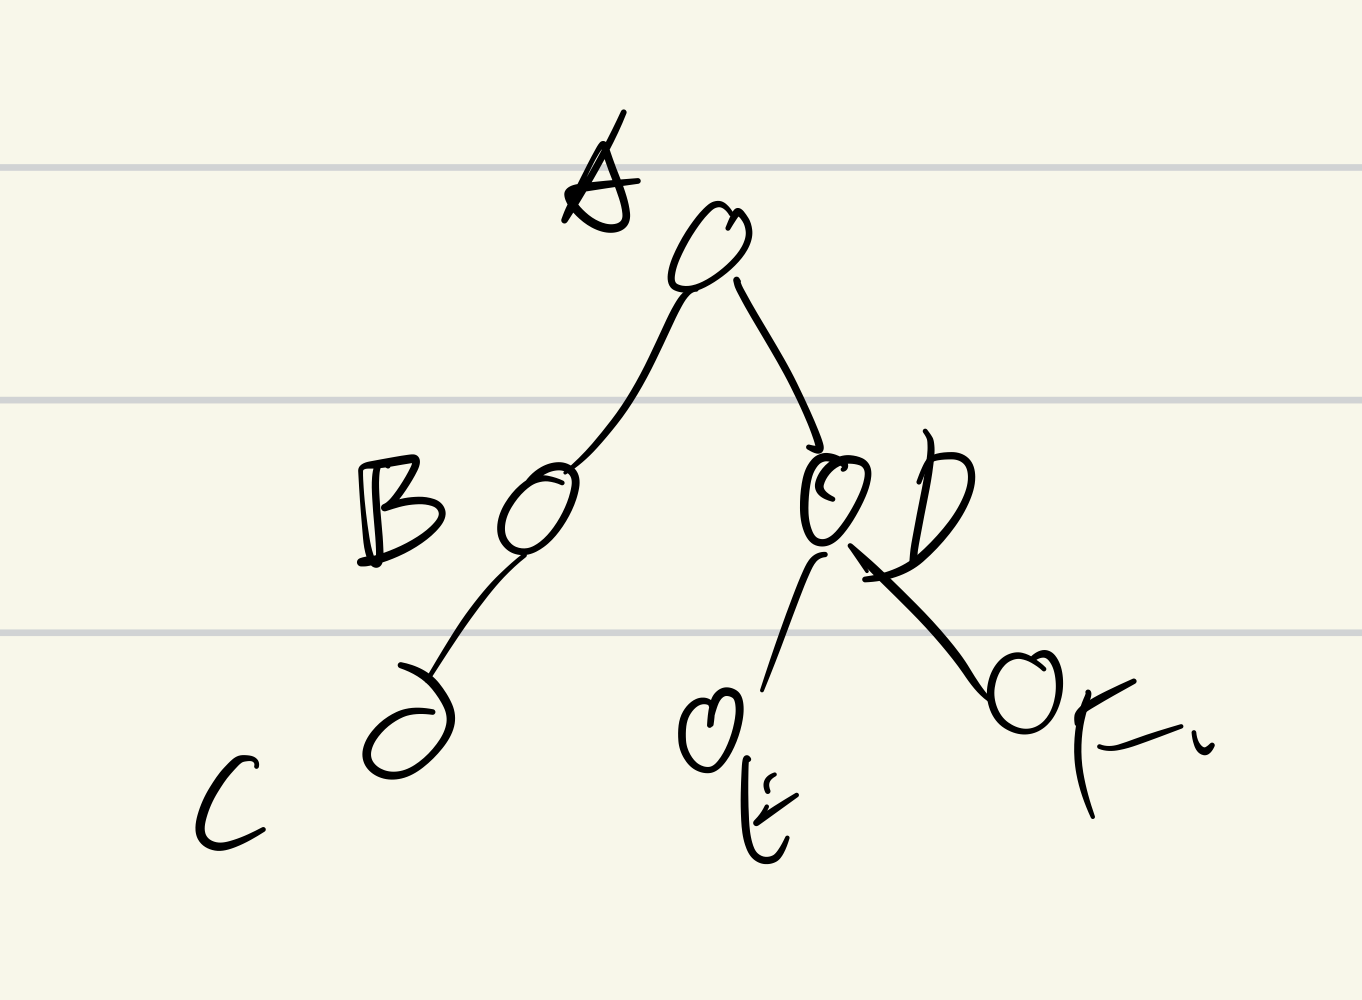 A
B
D
C
E
F